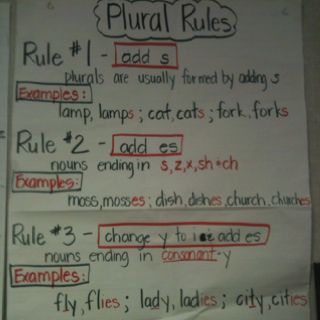 Plural Rules
Rule #1 - add s
plurals are usually formed by adding s
Examples:
lamp, lamps; cat, cats; fork, forks
Rule #2 - add es
nouns ending in s,z,x,sh+ch
Examples:
moss, mosses; dish, dishes, church, churches
Rule #3 - change y to i add es
nouns ending in consonant-y
Examples:
fly, flies; lady, ladies; city, cities